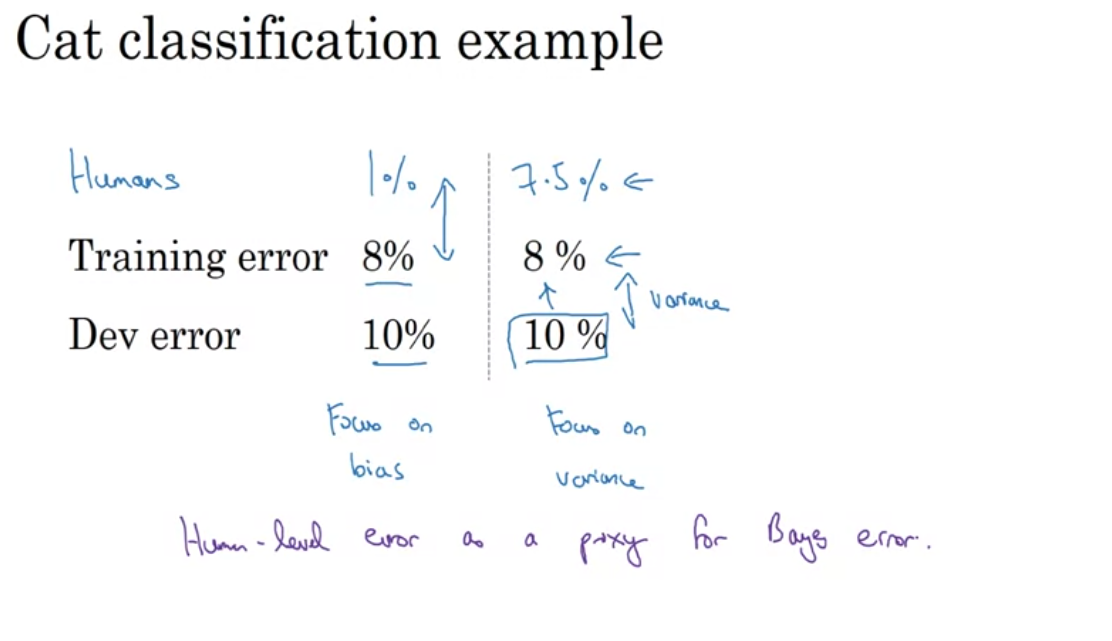 Cat classification example
Humans 1% 7.5%
Training error 8% 8 %
variance
Dev error 10% 10 %
Focus on Focus on
bias variance
Human-level error as a proxy for Bayes error.